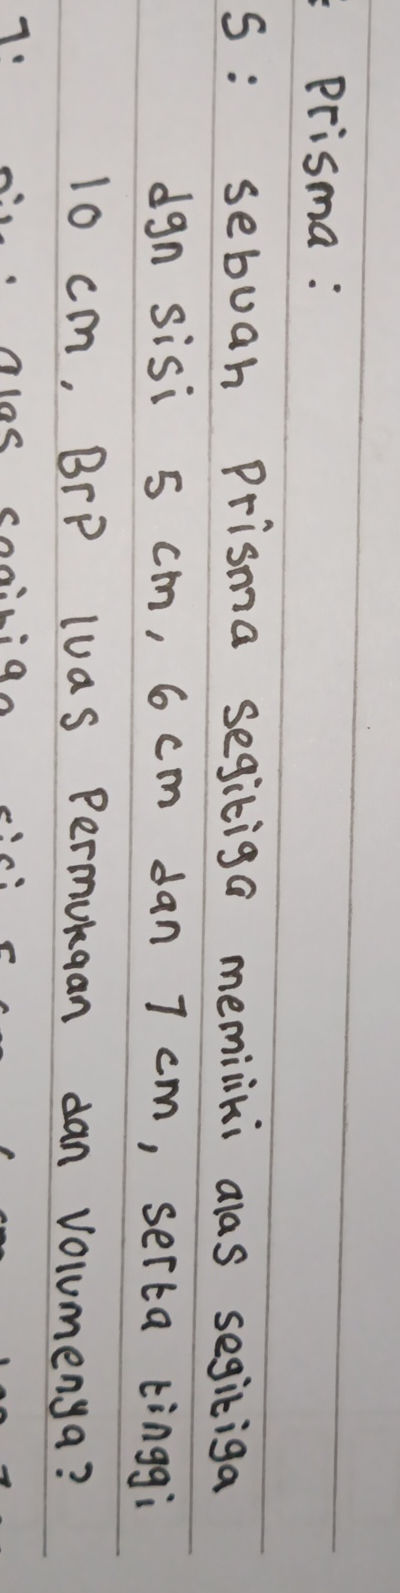 : Prisma :
S : sebuah Prisma segitiga memiliki alas segitiga
dgn sisi 5 cm, 6 cm dan 7 cm, serta tinggi
10 cm, Brp luas Permukaan dan Volumenya?